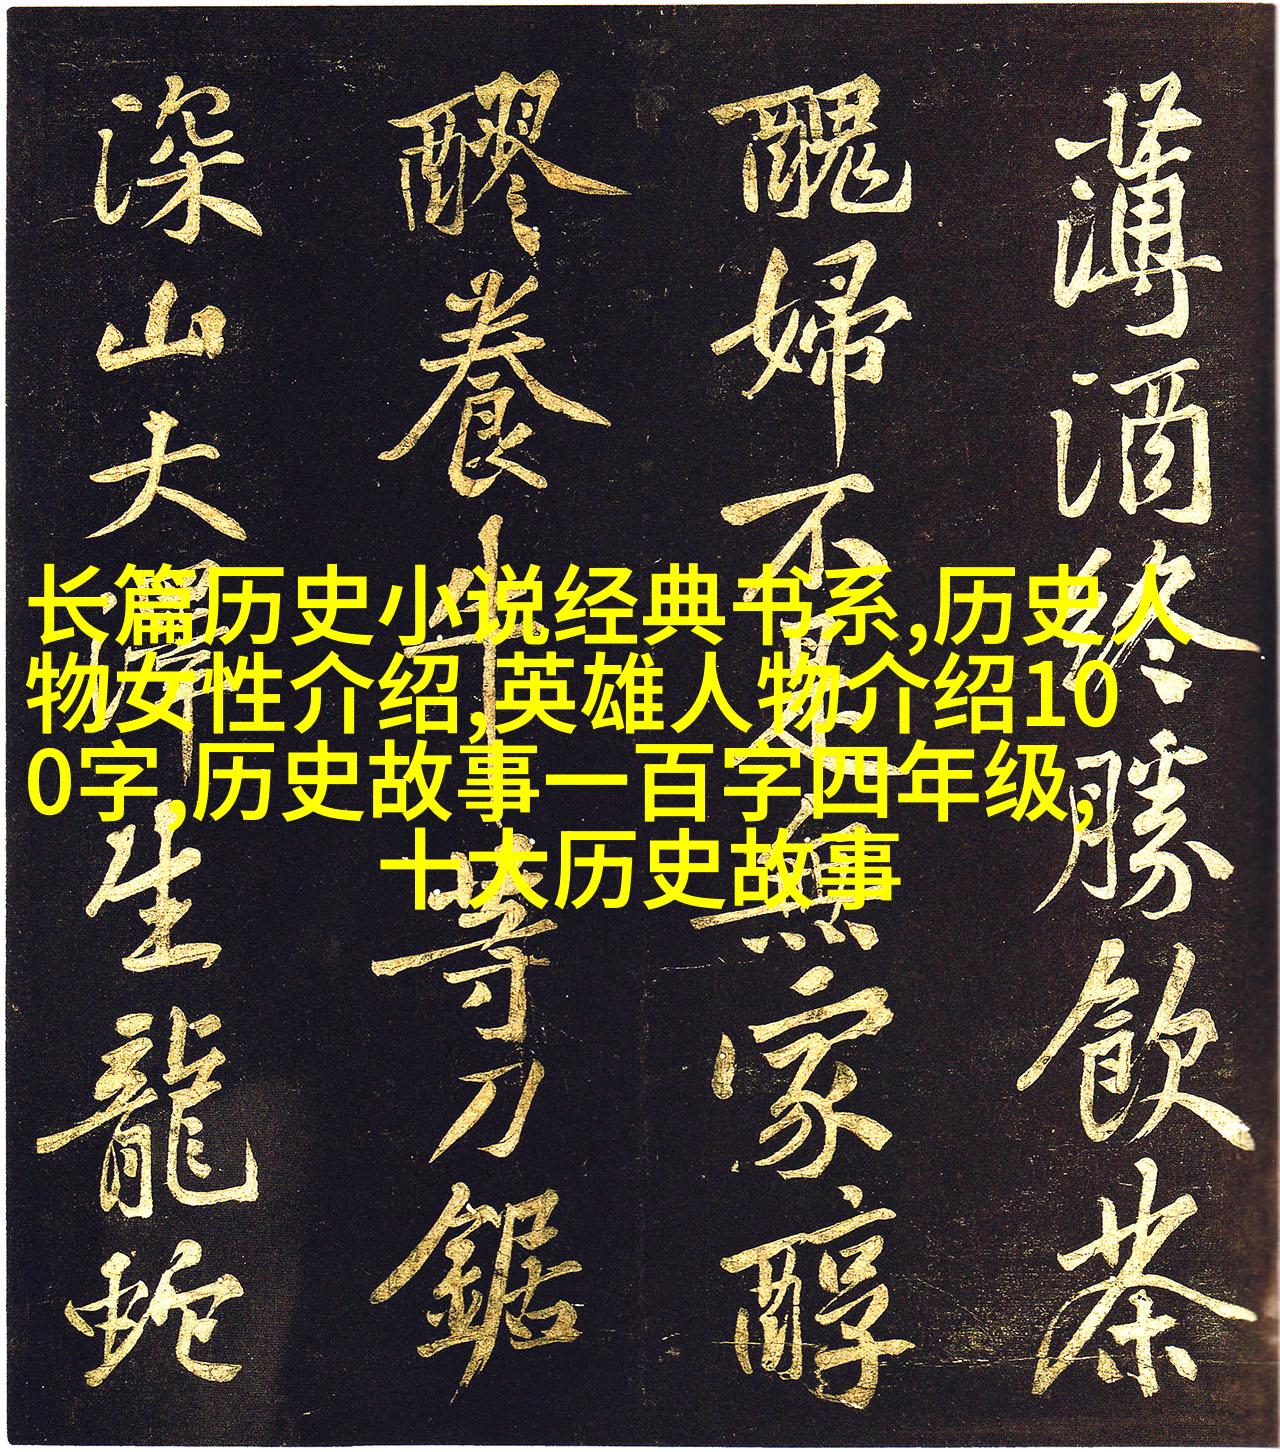 长篇历史小说经典书系,历史人
物女性介绍,英雄人物介绍10
0字,历史故事一百字四年级,
十大历史故事
薄酒終勝飲茶
醜婦不是無家醇
醪養牛等刀鋸
深山大澤生龍蛇